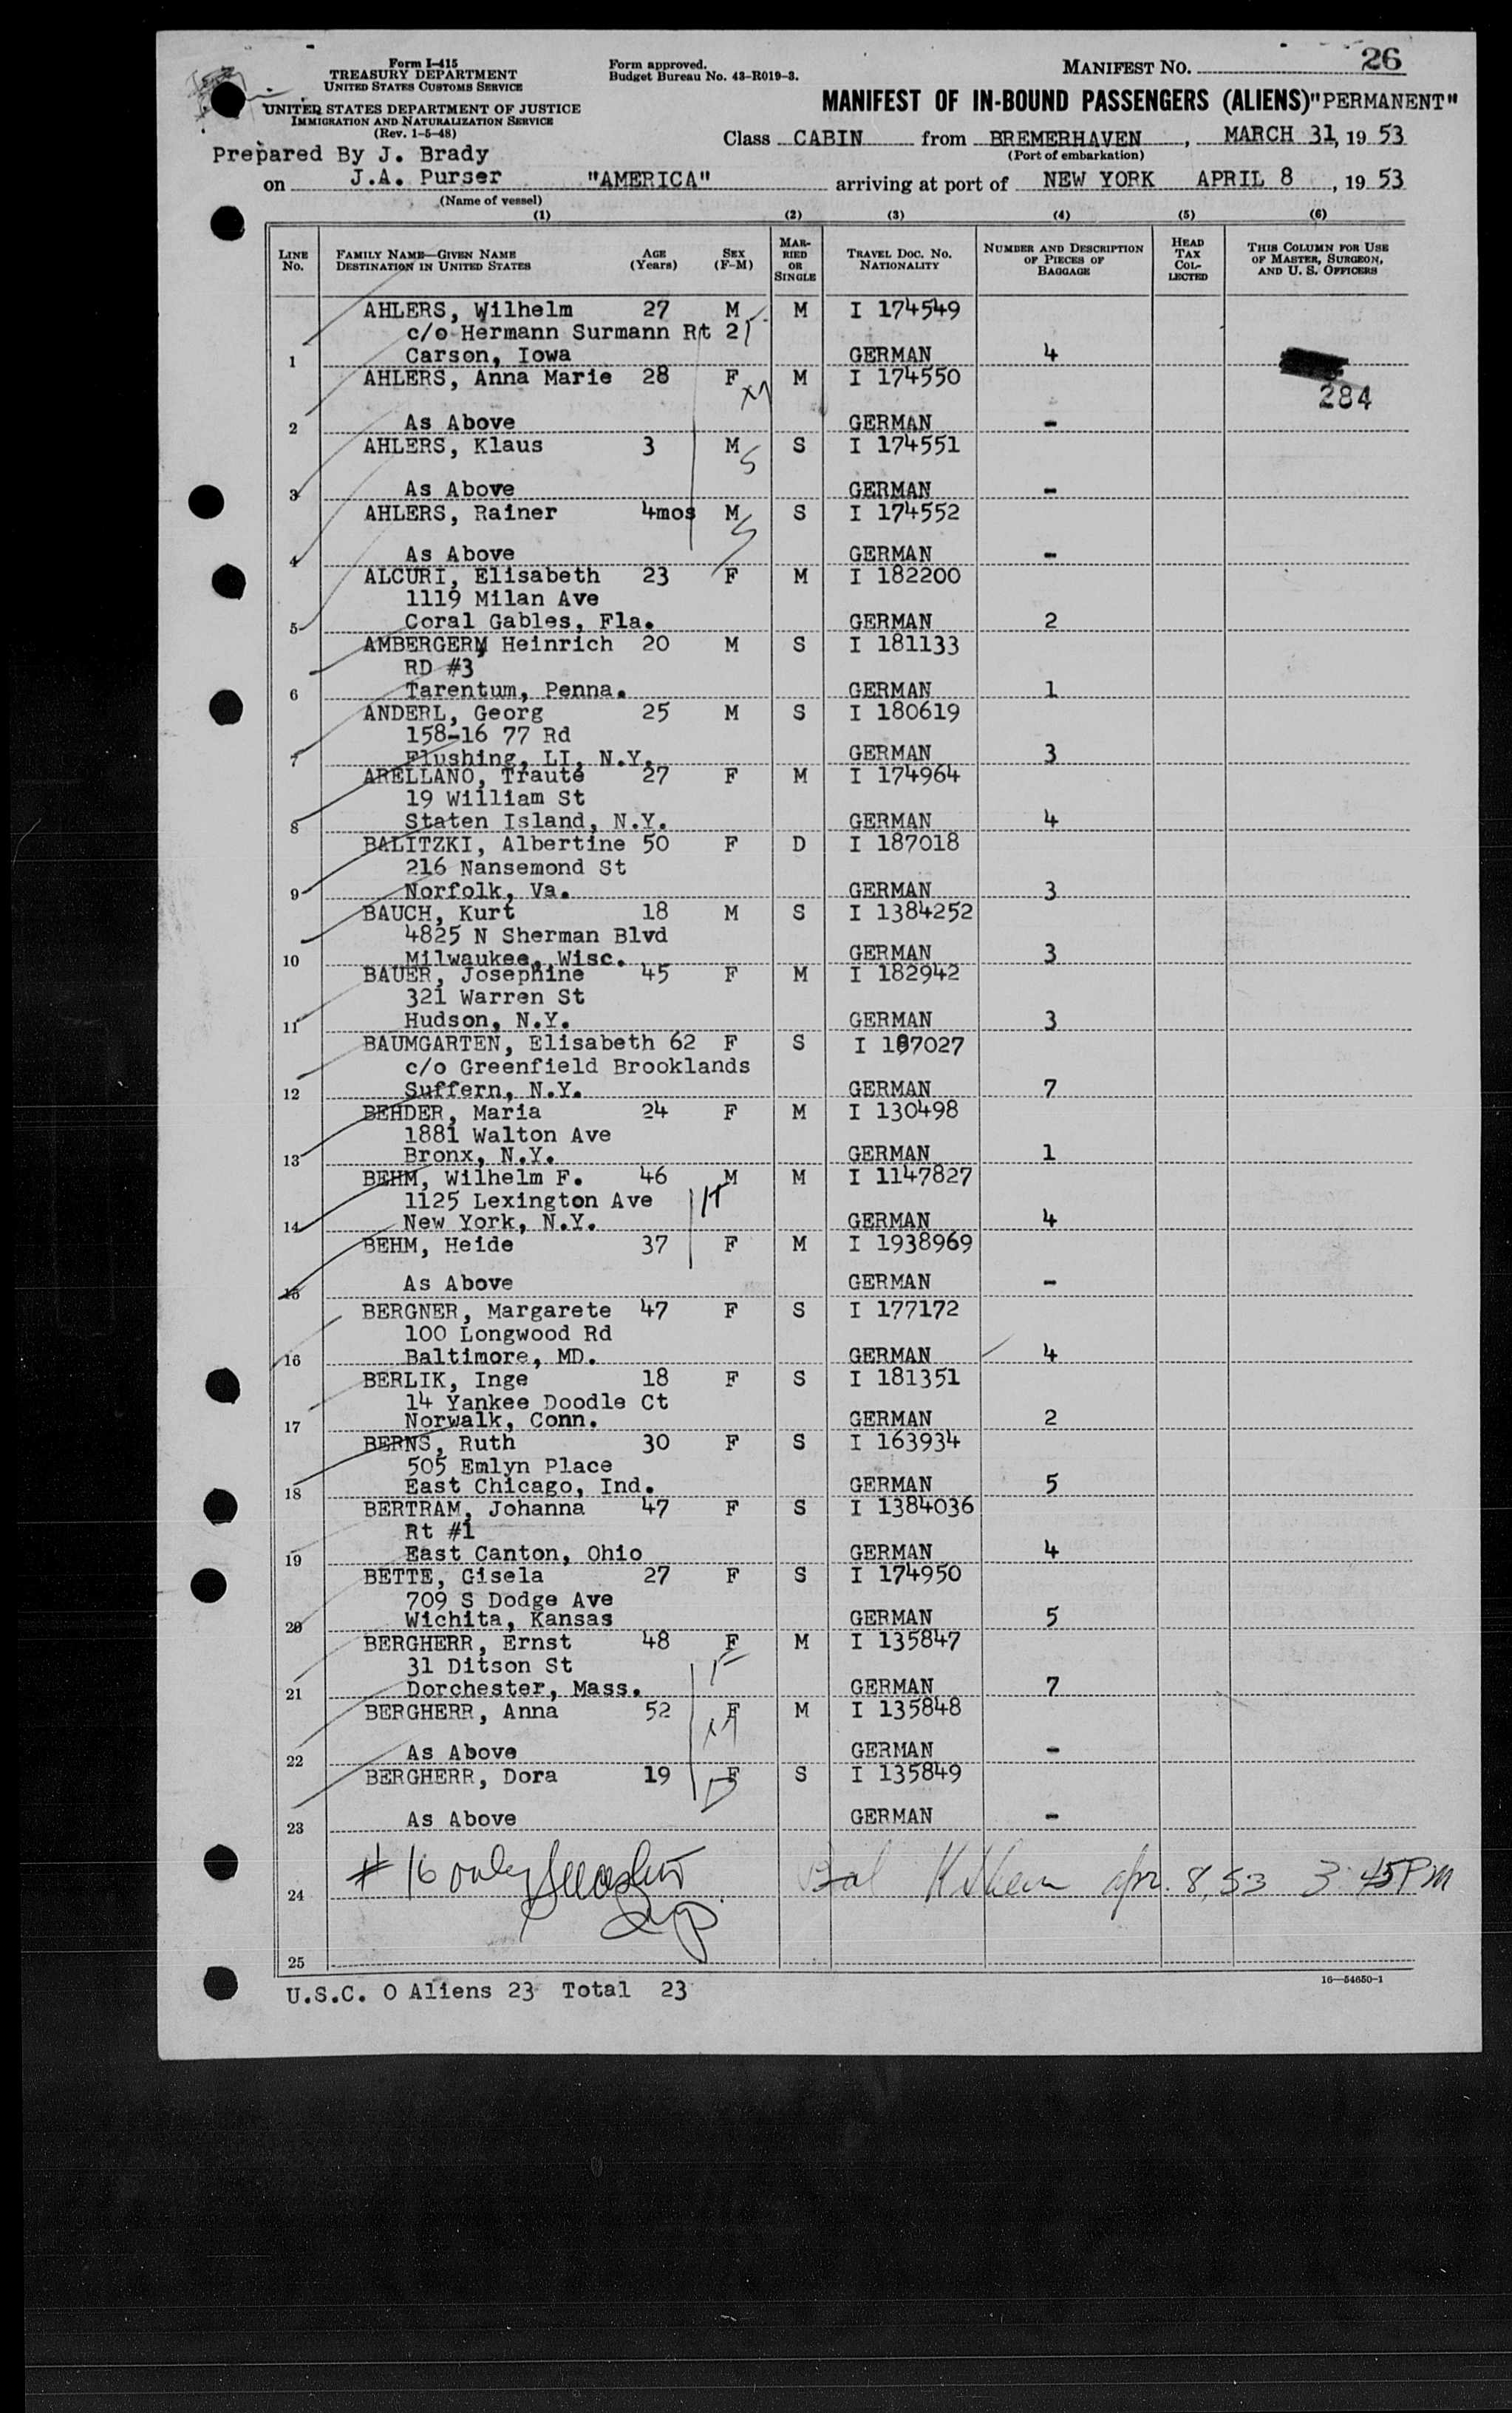 Form I-415
TREASURY DEPARTMENT
UNITED STATES CUSTOMS SERVICE
UNITED STATES DEPARTMENT OF JUSTICE
IMMIGRATION AND NATURALIZATION SERVICE
(Rev. 1-5-48)
Form approved.
Budget Bureau No. 43-R019-3.
MANIFEST NO. 26
MANIFEST OF IN-BOUND PASSENGERS (ALIENS) "PERMANENT"
Class CABIN from BREMERHAVEN, MARCH 31, 19 53
(Port of embarkation)
Prepared By J. Brady
on J.A. Purser "AMERICA" arriving at port of NEW YORK APRIL 8, 19 53
(Name of vessel)
(1) (2) (3) (4) (5) (6)
LINE No. FAMILY NAME—GIVEN NAME DESTINATION IN UNITED STATES AGE (Years) SEX (F-M) MARRIED OR SINGLE TRAVEL DOC. NO. NATIONALITY NUMBER AND DESCRIPTION OF PIECES OF BAGGAGE HEAD TAX COLLECTED THIS COLUMN FOR USE OF MASTER, SURGEON, AND U. S. OFFICERS
AHLERS, Wilhelm 27 M M I 174549
c/o Hermann Surmann Rt 2
1 Carson, Iowa GERMAN 4
AHLERS, Anna Marie 28 F M I 174550
284
2 As Above GERMAN -
AHLERS, Klaus 3 M S I 174551
3 As Above GERMAN -
AHLERS, Rainer 4mos M S I 174552
4 As Above GERMAN -
ALCURI, Elisabeth 23 F M I 182200
1119 Milan Ave
5 Coral Gables, Fla. GERMAN 2
AMBERGER, Heinrich 20 M S I 181133
RD #3
6 Tarentum, Penna. GERMAN 1
ANDERL, Georg 25 M S I 180619
158-16 77 Rd
7 Flushing, LI, N.Y. GERMAN 3
ARELLANO, Traute 27 F M I 174964
19 William St
8 Staten Island, N.Y. GERMAN 4
BALITZKI, Albertine 50 F D I 187018
216 Nansemond St
9 Norfolk, Va. GERMAN 3
BAUCH, Kurt 18 M S I 1384252
4825 N Sherman Blvd
10 Milwaukee, Wisc. GERMAN 3
BAUER, Josephine 45 F M I 182942
321 Warren St
11 Hudson, N.Y. GERMAN 3
BAUMGARTEN, Elisabeth 62 F S I 187027
c/o Greenfield Brooklands
12 Suffern, N.Y. GERMAN 7
BEHDER, Maria 24 F M I 130498
1881 Walton Ave
13 Bronx, N.Y. GERMAN 1
BEHM, Wilhelm F. 46 M M I 1147827
1125 Lexington Ave
14 New York, N.Y. GERMAN 4
BEHM, Heide 37 F M I 1938969
15 As Above GERMAN -
BERGNER, Margarete 47 F S I 177172
100 Longwood Rd
16 Baltimore, MD. GERMAN 4
BERLIK, Inge 18 F S I 181351
14 Yankee Doodle Ct
17 Norwalk, Conn. GERMAN 2
BERNS, Ruth 30 F S I 163934
505 Emlyn Place
18 East Chicago, Ind. GERMAN 5
BERTRAM, Johanna 47 F S I 1384036
Rt #1
19 East Canton, Ohio GERMAN 4
BETTE, Gisela 27 F S I 174950
709 S Dodge Ave
20 Wichita, Kansas GERMAN 5
BERGHERR, Ernst 48 F M I 135847
31 Ditson St
21 Dorchester, Mass. GERMAN 7
BERGHERR, Anna 52 F M I 135848
22 As Above GERMAN -
BERGHERR, Dora 19 F S I 135849
23 As Above GERMAN -
24 # 16 only Apr. 8, 53 3:45 PM
25
U.S.C. 0 Aliens 23 Total 23
16—54650-1